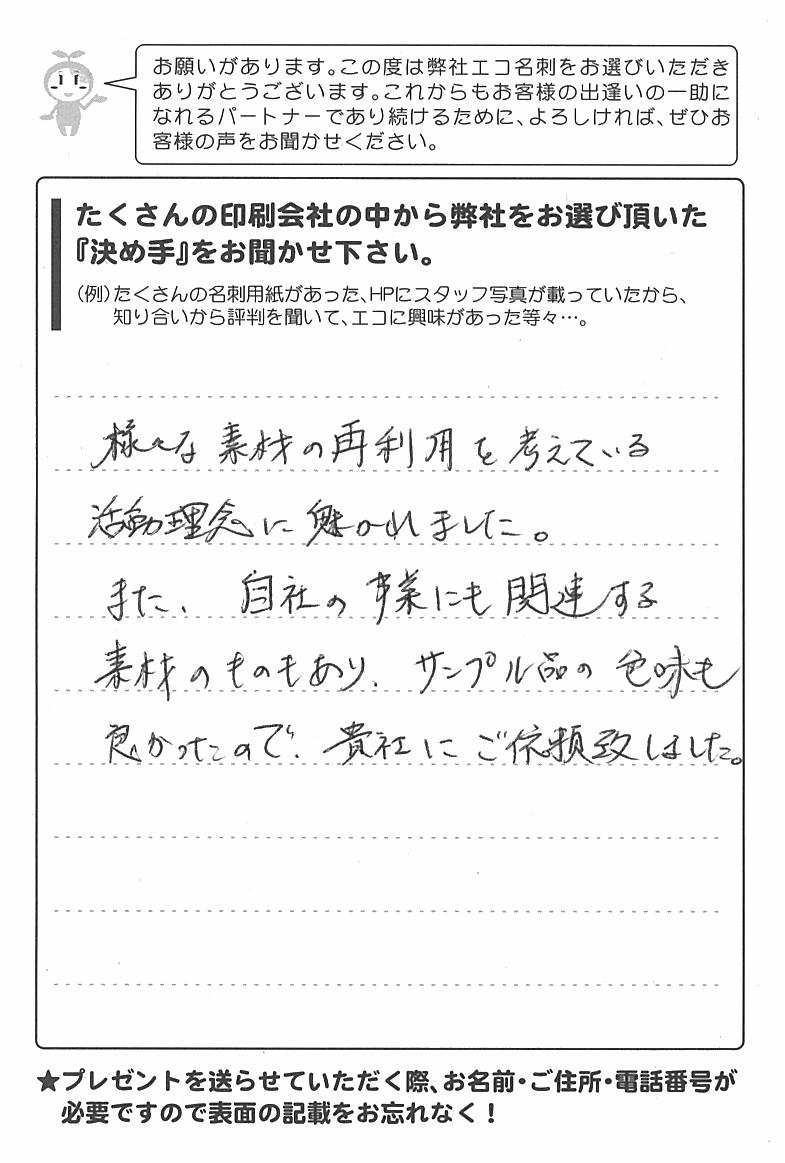 お願いがあります。この度は弊社エコ名刺をお選びいただき
ありがとうございます。これからもお客様の出逢いの一助に
なれるパートナーであり続けるために、よろしければ、ぜひお
客様の声をお聞かせください。
たくさんの印刷会社の中から弊社をお選び頂いた
『決め手』をお聞かせ下さい。
（例）たくさんの名刺用紙があった、HPにスタッフ写真が載っていたから、
知り合いから評判を聞いて、エコに興味があった等々…。
様々な素材の再利用を考えている
活動理念に魅かれました。
また、自社の事業にも関連する
素材のものもあり、サンプル品の色味も
良かったので、貴社にご依頼致しました。
★プレゼントを送らせていただく際、お名前・ご住所・電話番号が
必要ですので表面の記載をお忘れなく！